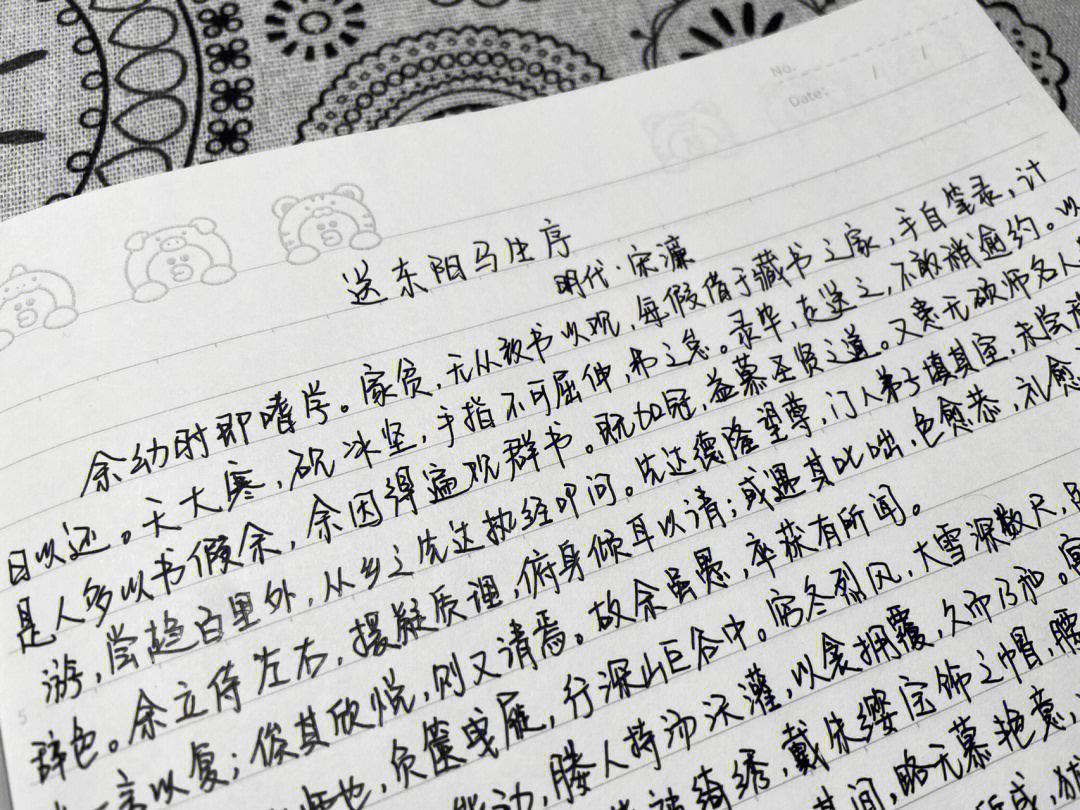 No.
Date: / /
送东阳马生序
明代·宋濂
余幼时即嗜学。家贫，无从致书以观，每假借于藏书之家，手自笔录，计
日以还。天大寒，砚冰坚，手指不可屈伸，弗之怠。录毕，走送之，不敢稍逾约。以
是人多以书假余，余因得遍观群书。既加冠，益慕圣贤之道。又患无硕师名人
游，尝趋百里外，从乡之先达执经叩问。先达德隆望尊，门人弟子填其室，未尝
辞色。余立侍左右，援疑质理，俯身倾耳以请；或遇其叱咄，色愈恭，礼愈
言以复；俟其欣悦，则又请焉。故余虽愚，卒获有所闻。
师也，负箧曳屣，行深山巨谷中。穷冬烈风，大雪深数尺，
能动，媵人持汤沃灌，以衾拥覆，久而乃和。寓
被绮绣，戴朱缨宝饰之帽，腰
其间，略无慕艳意，
成，犹
5